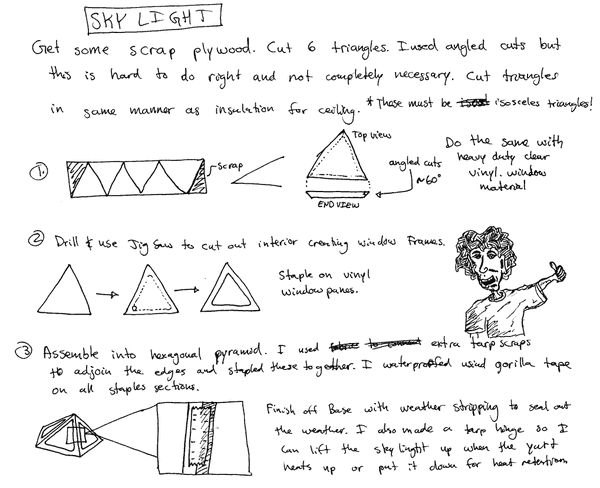 SKY LIGHT
Get some scrap plywood. Cut 6 triangles. I used angled cuts but
this is hard to do right and not completely necessary. Cut triangles
in same manner as insulation for ceiling. * These must be isosceles triangles!
1.
Scrap
Top view
angled cuts
~60°
END VIEW
Do the same with
heavy duty clear
vinyl. window
material
2 Drill & use Jig Saw to cut out interior creating window frames.
Staple on vinyl
window panes.
3 Assemble into hexagonal pyramid. I used extra tarp scraps
to adjoin the edges and stapled these together. I waterproofed using gorilla tape
on all staples sections.
Finish off Base with weather stripping to seal out
the weather. I also made a tarp hinge so I
can lift the sky light up when the yurt
heats up or put it down for heat retention.